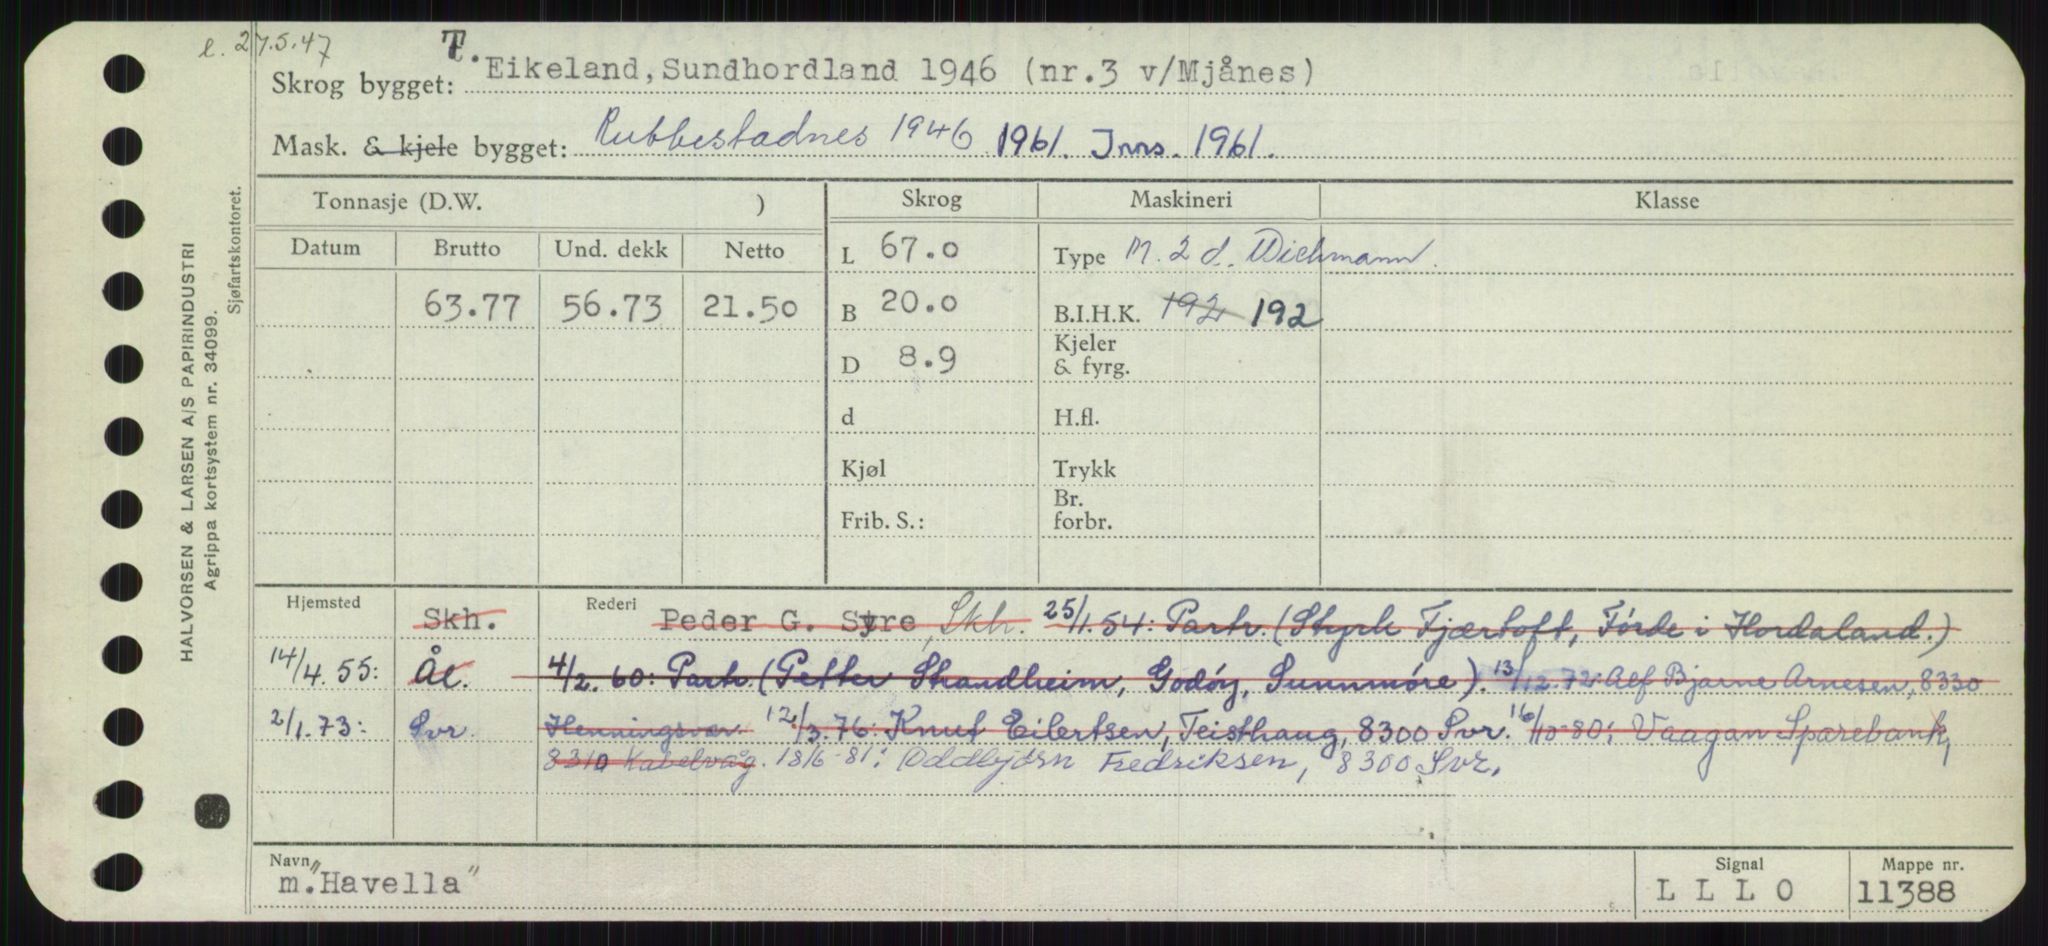 e. 27.5.47
Skrog bygget: T. Eikeland, Sundhordland 1946 (nr.3 v/Mjånes)
Mask. & kjele bygget: Rubbestadnes 1946 1961. Inns. 1961.
Tonnasje (D.W. ) Skrog Maskineri Klasse
Datum Brutto Und. dekk Netto L 67.0 Type M. 2 d. Wichmann.
63.77 56.73 21.50 B 20.0 B.I.H.K. 192 192
D 8.9 Kjeler & fyrg.
d H.fl.
Kjøl Trykk
Frib. S.: Br. forbr.
Hjemsted Skh. Rederi Peder G. Støre, Skh. 25/1.54: Partr. (Styrk Fjærtoft, Førde i Hordaland.)
14/4.55: Ål. 4/2.60: Partr. (Petter Strandheim, Godøy, Sunnmøre). 13/12.72: Alf Bjarne Arnesen, 8330
2/1.73: Svr. Henningsvær. 12/3.76: Knut Eilertsen, Teisthaug, 8300 Svr. 16/10-80: Vaagan Sparebank,
8310 Kabelvåg. 18/6-81: Oddbjørn Fredriksen, 8300 Svr.
Navn m. "Havella" Signal LLLO Mappe nr. 11388
HALVORSEN & LARSEN A/S PAPIRINDUSTRI
Agrippa kortsystem nr. 34099.
Sjøfartskontoret.